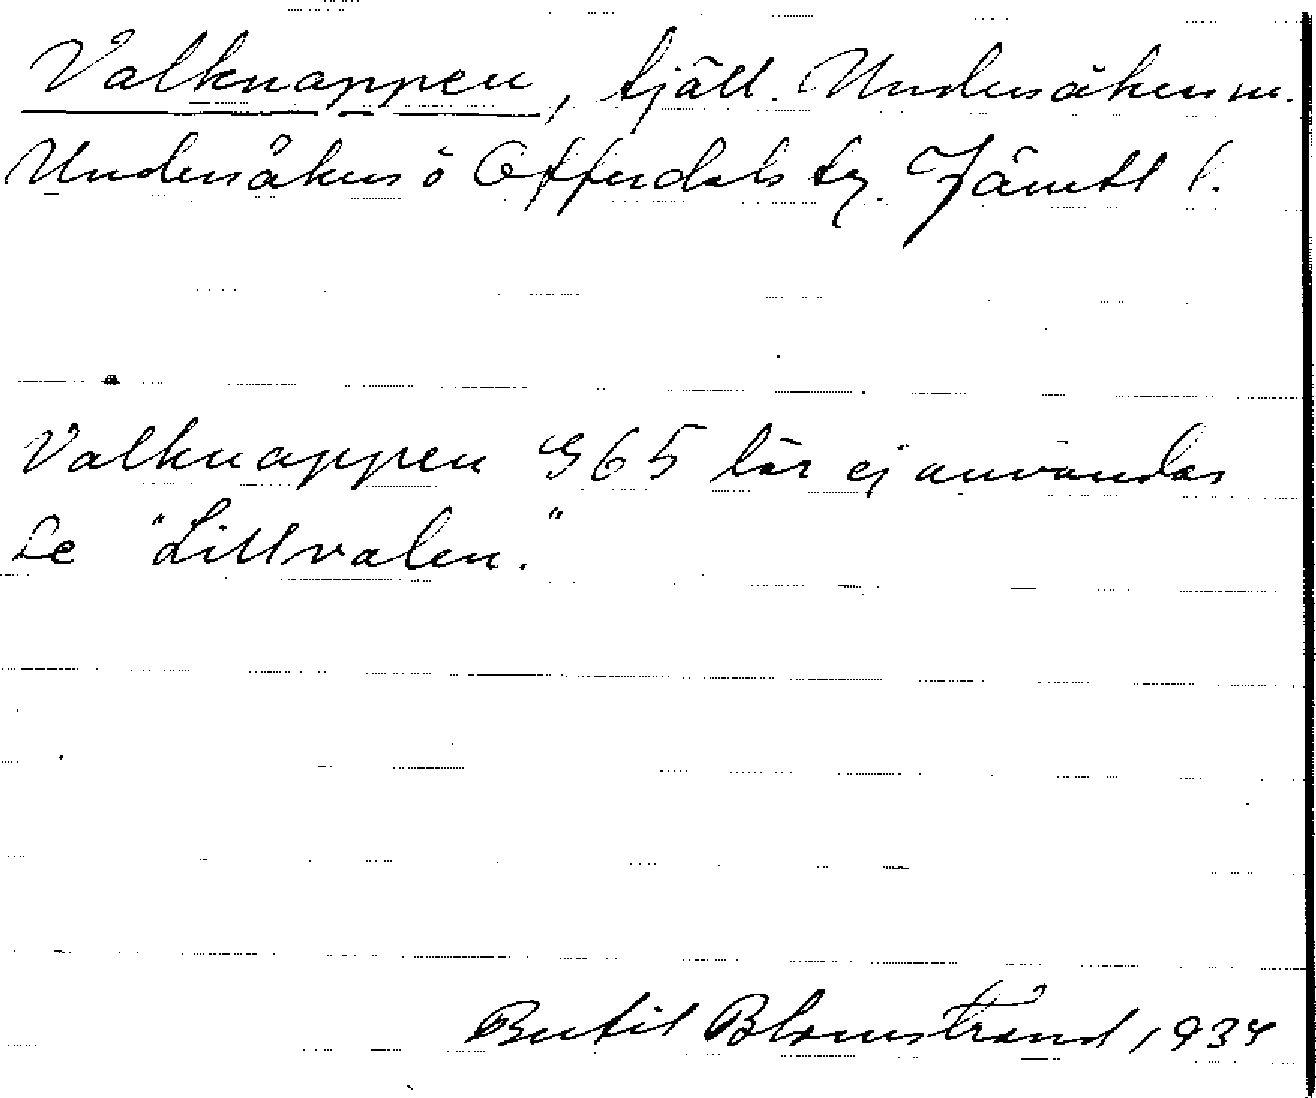 Valknappen, fjäll. Undersåkers m.
Undersåkers o Offerdals tg. Jämtl l.
Valknappen 965 lär ej användas
Se "Lillvalen."
Bertil Blomstrand 1934